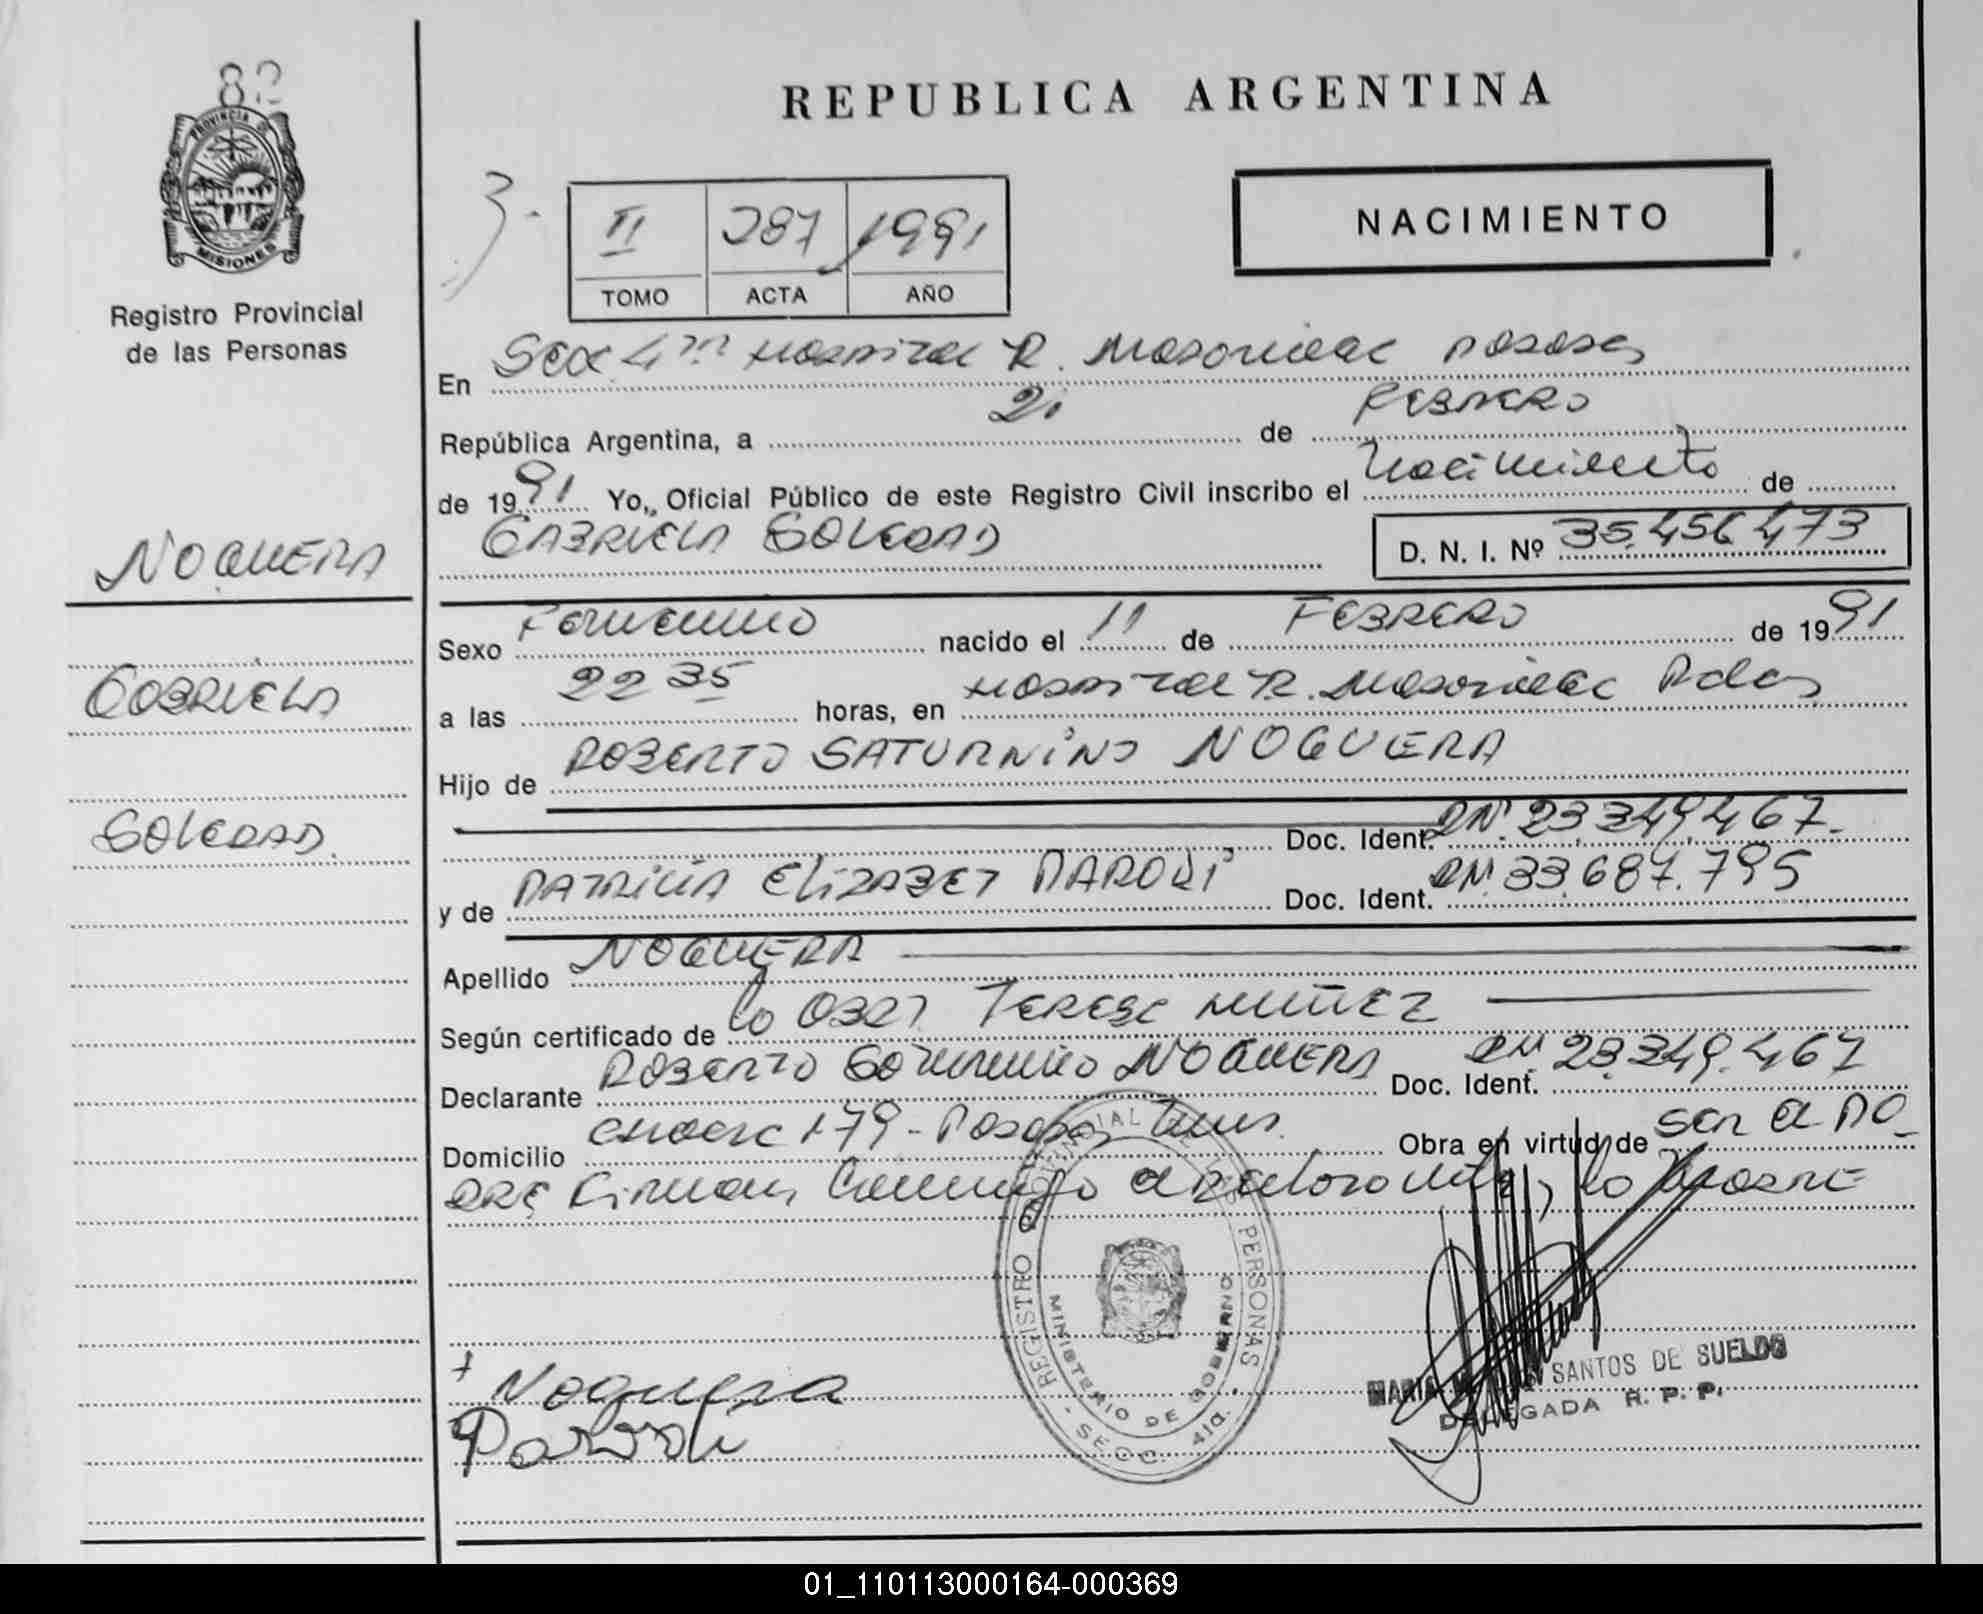 82
PROVINCIA DE
MISIONES
Registro Provincial
de las Personas
REPUBLICA ARGENTINA
3.
II 287 1991
TOMO ACTA AÑO
NACIMIENTO
En Secc 4ta Hospital R. Madariaga Posadas
República Argentina, a 21 de FEBRERO
de 1991 Yo, Oficial Público de este Registro Civil inscribo el Nacimiento de
GABRIELA SOLEDAD
D. N. I. Nº 35.456.473
NOGUERA
GABRIELA
SOLEDAD
Sexo Femenino nacido el 11 de FEBRERO de 1991
a las 22 35 horas, en Hospital R. Madariaga Pdas
Hijo de ROBERTO SATURNINO NOGUERA
Doc. Ident. DNI. 23.349.467.
y de PATRICIA ELIZABET PARODI Doc. Ident. DNI. 33.687.795
Apellido NOGUERA
Según certificado de la Obst. TERESA NUÑEZ
Declarante ROBERTO SATURNINO NOGUERA Doc. Ident. DNI 23.349.467
Domicilio 179 - Posadas Mnes. Obra en virtud de SER EL PA-
DRE Firman Conmigo el declarante, la MADRE
+ Noguera
Parodi
REGISTRO PROVINCIAL DE LAS PERSONAS
MINISTERIO DE GOBIERNO
- SECC. 4ta. -
MARIA SANTOS DE SUELDO
DELEGADA R. P. P.
01_110113000164-000369